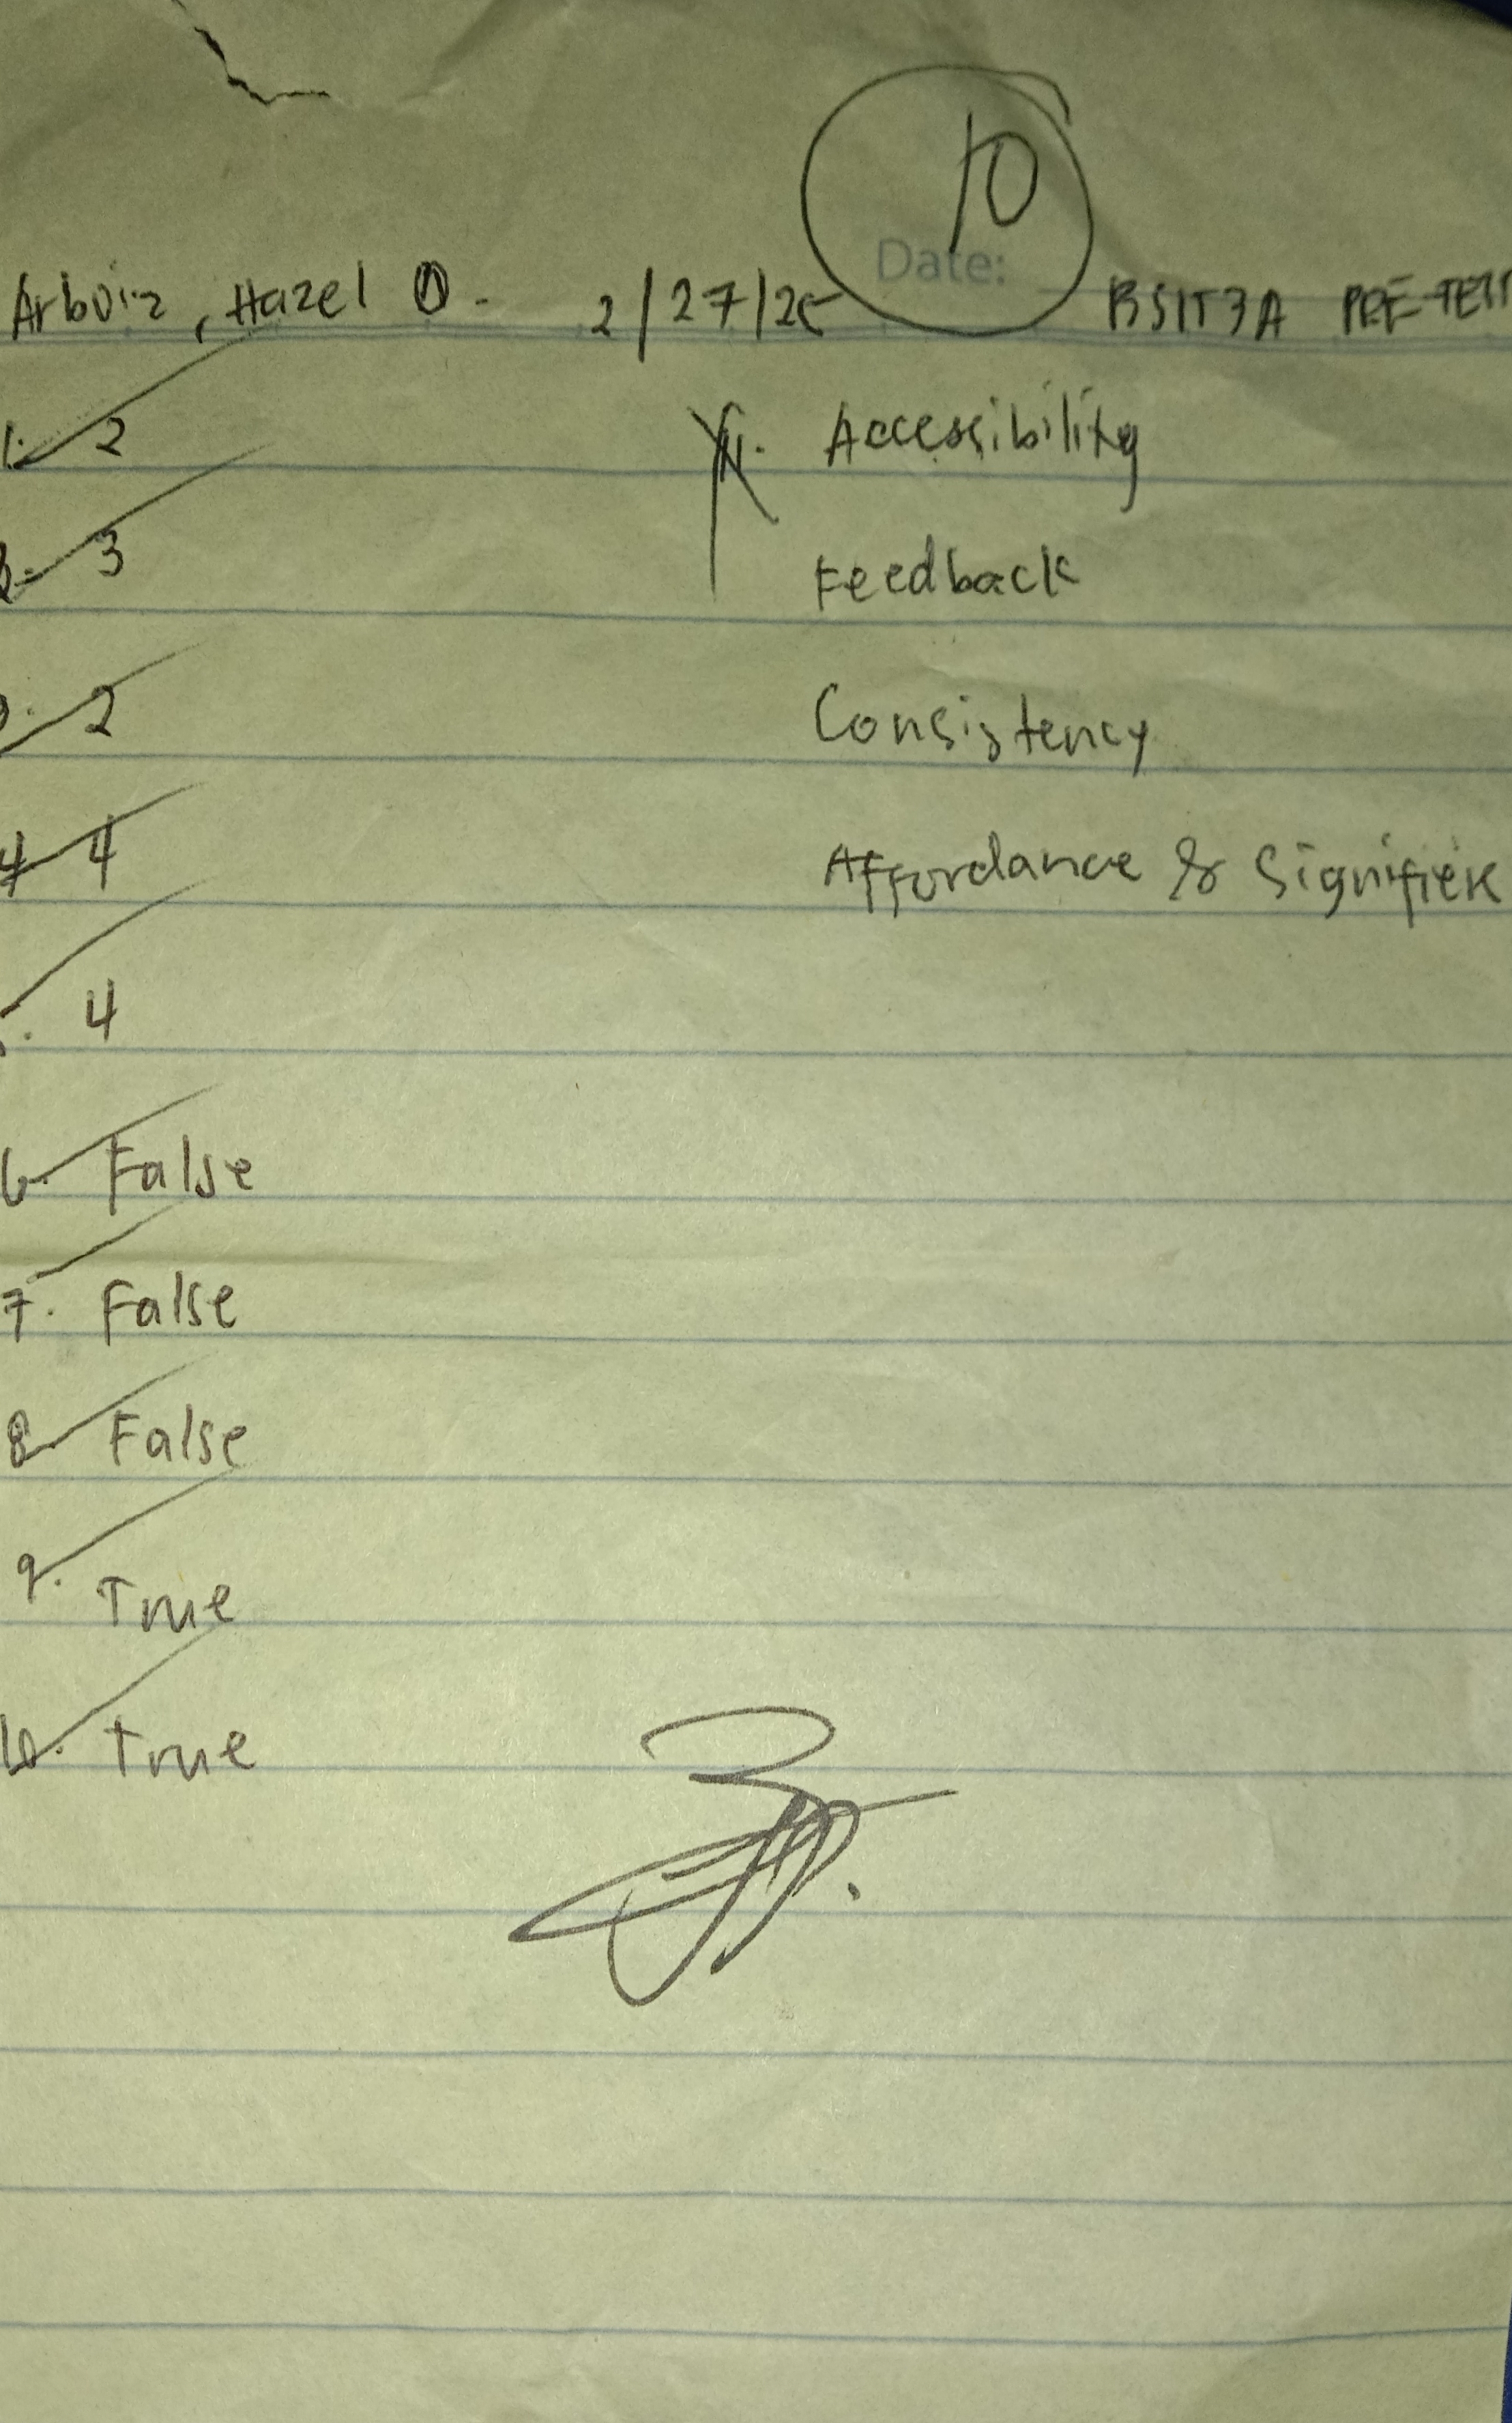 10
Date:
Arboiz, Hazel O. 2/27/25 BSIT3A PRE-TEST
1. 2
2. 3
3. 2
4. 4
5. 4
6. False
7. False
8. False
9. True
10. True
11. Accessibility
Feedback
Consistency
Affordance & Signifier